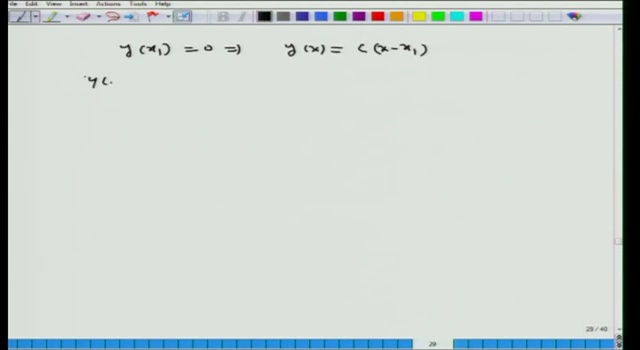 File Edit View Insert Actions Tools Help
y(x₁) = 0 ⇒ y(x) = c(x-x₁)
y(
29 / 40
29